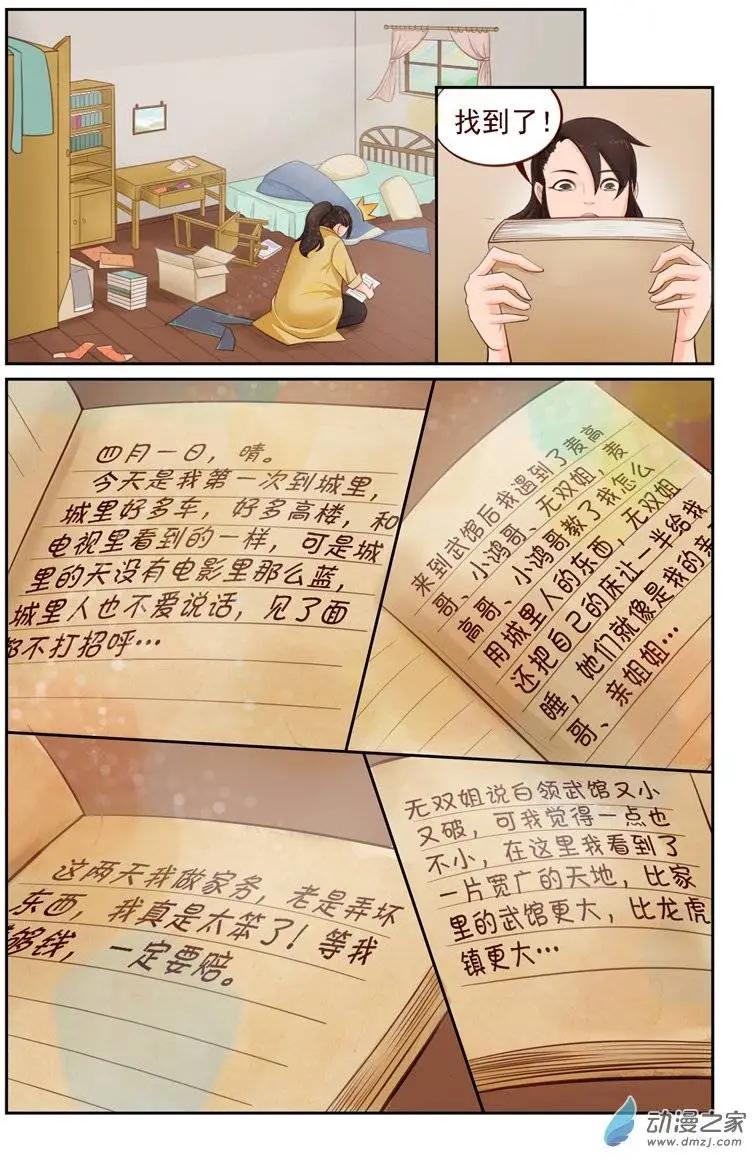 找到了！
四月一日，晴。
今天是我第一次到城里，
城里好多车，好多高楼，和
电视里看到的一样，可是城
里的天没有电影里那么蓝，
城里人也不爱说话，见了面
都不打招呼…
来到武馆后我遇到了麦高
哥、小鸿哥、无双姐，麦
高哥、小鸿哥教了我怎么
用城里人的东西，无双姐
还把自己的床让一半给我
睡，她们就像是我的亲
哥、亲姐姐…
这两天我做家务，老是弄坏
东西，我真是太笨了！等我
够钱，一定要赔。
无双姐说白领武馆又小
又破，可我觉得一点也
不小，在这里我看到了
一片宽广的天地，比家
里的武馆更大，比龙虎
镇更大…
动漫之家
www.dmzj.com